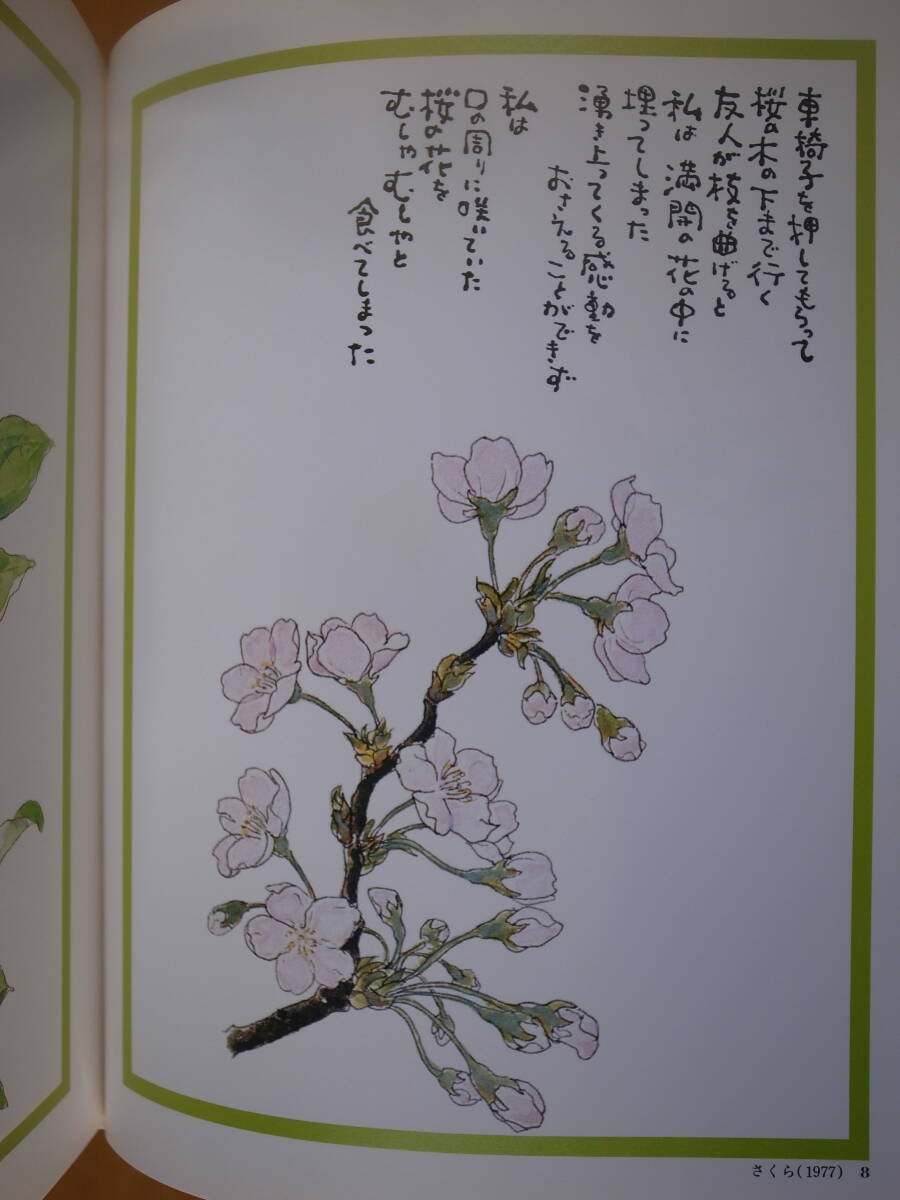 車椅子を押してもらって
桜の木の下まで行く
友人が枝を曲げると
私は 満開の花の中に
埋ってしまった
湧き上ってくる感動を
おさえることができず
私は
口の周りに咲いていた
桜の花を
むしゃむしゃと
食べてしまった
さくら(1977) 8